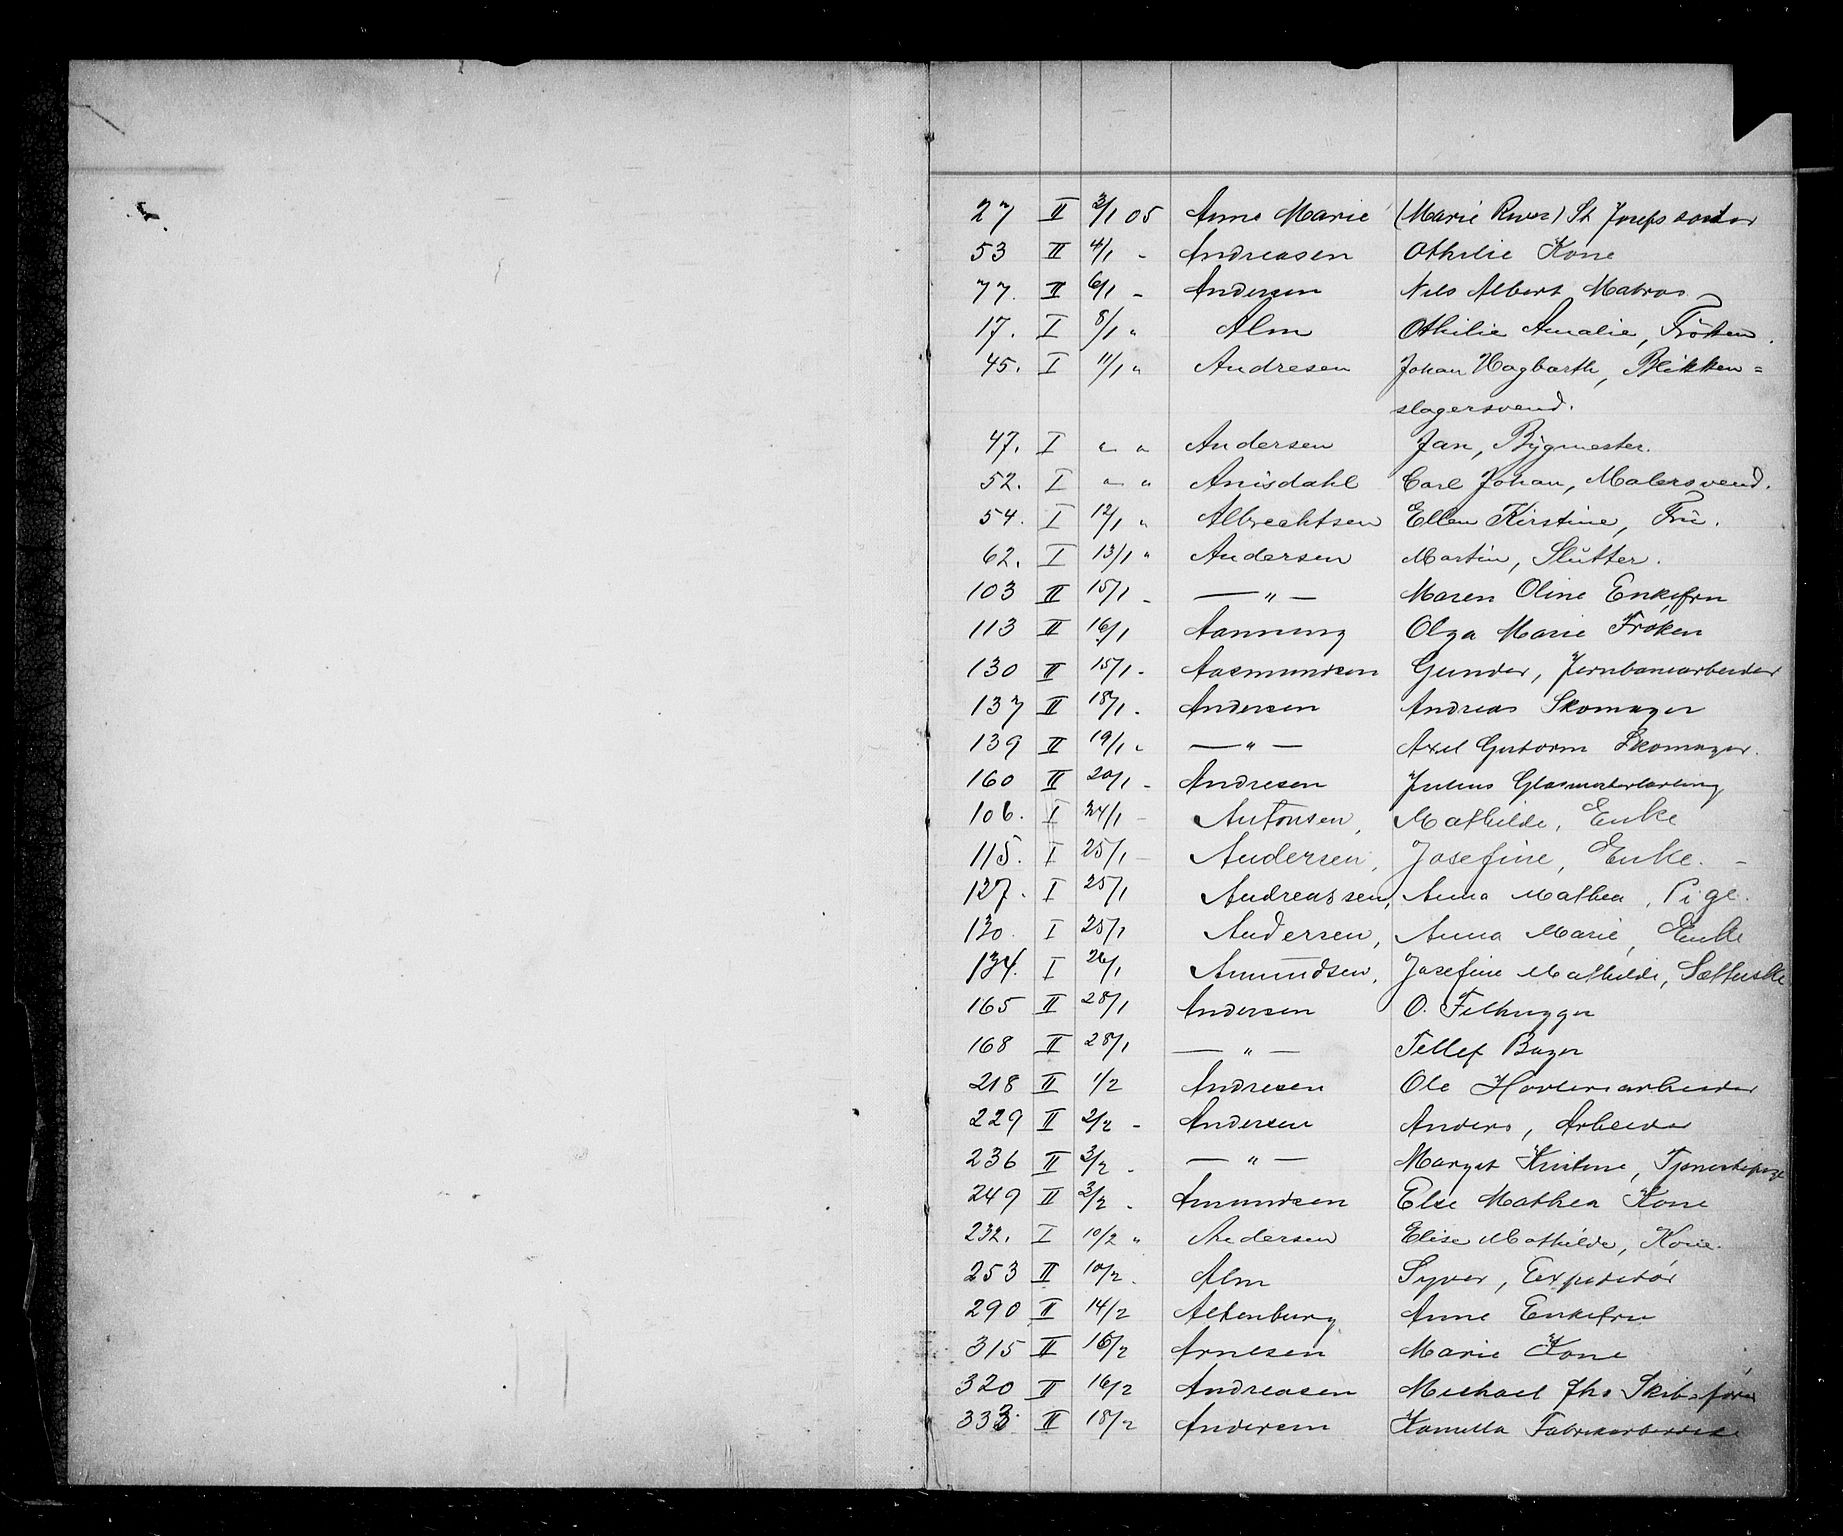 27 II 3/1 05 Anne Marie (Marie Roven) St Josefs søster
53 II 4/1 - Andreasen Othilie Kone
77. II 6/1 - Andersen Nils Albert Matros
17. I 8/1 " Alm Othilie Amalie, Frøken.
45. I 11/1 " Andresen Johan Hagbarth, Blikken=
slagersvend.
47. I " " Andersen Jan, Bygmester.
52. I " " Anisdahl Carl Johan, Malersvend.
54. I 12/1 " Albrechtsen Ellen Kirstine, Frü.
62. I 13/1 " Andersen Martin, Slutter.
103 II 15/1 - — " — Maren Oline Enkefru
113 II 16/1 Aanning Olga Marie Frøken
130 II 15/1 - Aasmundsen Gunder, Jernbanearbeider
137 II 18/1 - Andersen Andreas Skomager
139 II 19/1 " — " — Axel Guttorm Skomager.
160 II 20/1 - Andresen Julius Glasmesterlærling
106. I 24/1 - Antonsen, Mathilde, Enke
115. I 25/1 - Andersen, Josefine, Enke. -
127. I 25/1 Andreassen, Anna Mathea, Pige.
130. I 25/1 Andersen, Anna Marie, Enke
134. I 26/1 Amundsen, Josefine Mathilde, Sætterske
165 II 28/1 Andersen O. Filhugger
168 II 28/1 — " — Tellef Bager
218 II 1/2 Andresen Ole Havnearbeider
229 II 2/2 - Andersen Anders, Arbeider
236 II 3/2 - — " — Margit Kristine, Tjenestepige
249 II 3/2 - Amundsen Else Mathea Kone
232. I 10/2 " Andersen Elise Mathilde, Kone.
253 II 10/2. Alm Syver, Expeditør
290 II 14/2 Altenburg Anne Enkefru
315 II 16/2 Arnesen Marie Kone
320 II 16/2 Andreasen Michael Jhs Skibsfører
333 II 18/2 Andersen Kamilla Fabrikarbeider